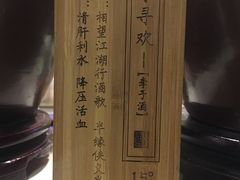 寻欢——【李子酒】
15°
相望江湖行酒歌 半缘侠
清肝利水 降压活血